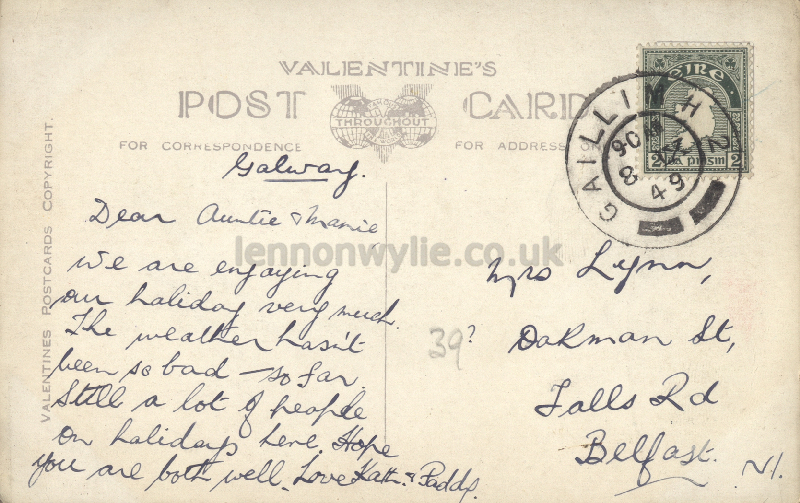 VALENTINE'S
POST CARD
THROUGHOUT
FOR CORRESPONDENCE
FOR ADDRESS ON
VALENTINES POSTCARDS COPYRIGHT.
Galway.
Dear Auntie & Mamie,
We are enjoying
our holiday very much.
The weather hasn't
been so bad - so far.
Still a lot of people
on holidays here. Hope
you are both well. Love Kath. & Paddy.
39?
Mrs Lynn,
Oakman St,
Falls Rd
Belfast.
N.I.
éire
2 2
GAILLIMH
8
49
lennonwylie.co.uk